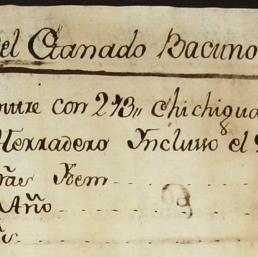 el Ganado Bacuno
con 273,, chichigua
Herradero Inclusso el
Ydem
Año